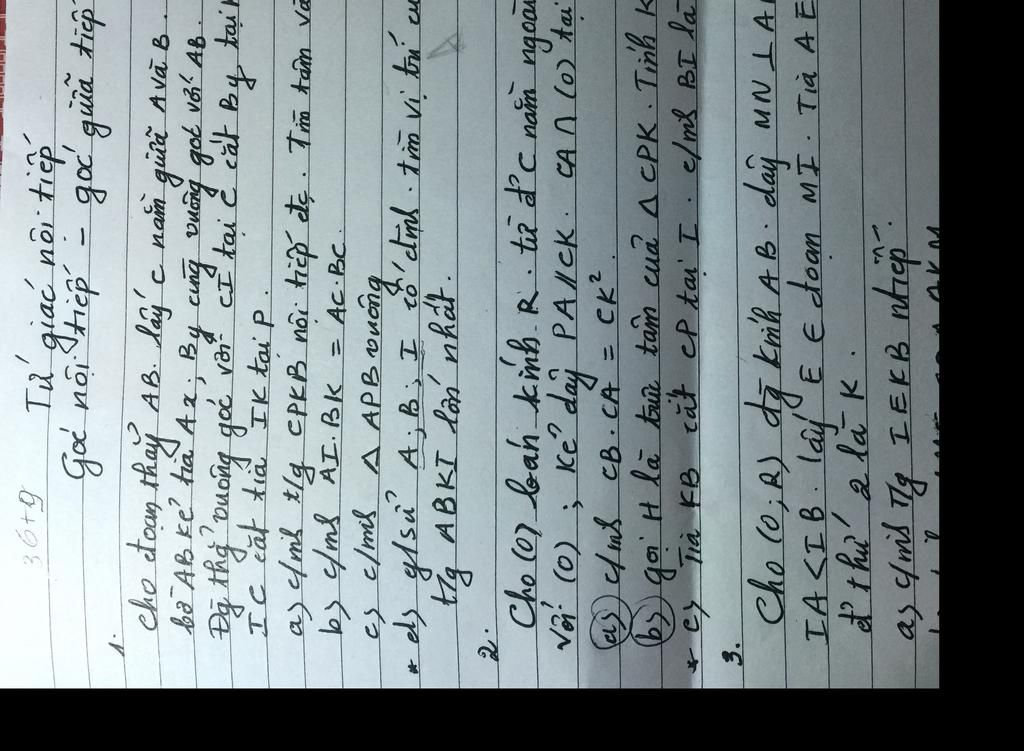 36+g
Tứ giác nội tiếp
Góc nội tiếp - góc giữa tiếp
1.
Cho đoạn thẳng AB. lấy C nằm giữa A và B.
bờ AB kẻ tia Ax; By cùng vuông góc với AB.
Đg thẳng vuông góc với CI tại C cắt By tại K
IC cắt tia IK tại P.
a) c/ms t/g CPKB nội tiếp đc. Tìm tâm và
b) c/ms AI.BK = AC.BC.
c) c/ms Δ APB vuông
* d) g/sử A; B; I cố định. tìm vị trí củ
t/g ABKI lớn nhất.
2.
Cho (O) bán kính R. từ đ' C nằm ngoài
với (O); kẻ dây PA // CK. CA ∩ (O) tại
a) c/ms CB.CA = CK²
b) gọi H là trực tâm của Δ CPK. Tính K
* c) Tia KB cắt CP tại I. c/ms BI là
3.
Cho (O;R) đg kính AB. dây MN ⊥ A
IA < IB. lấy E ∈ đoạn MI. Tia AE
đ' thứ 2 là K.
a) c/ms T/g IEKB ntiếp.